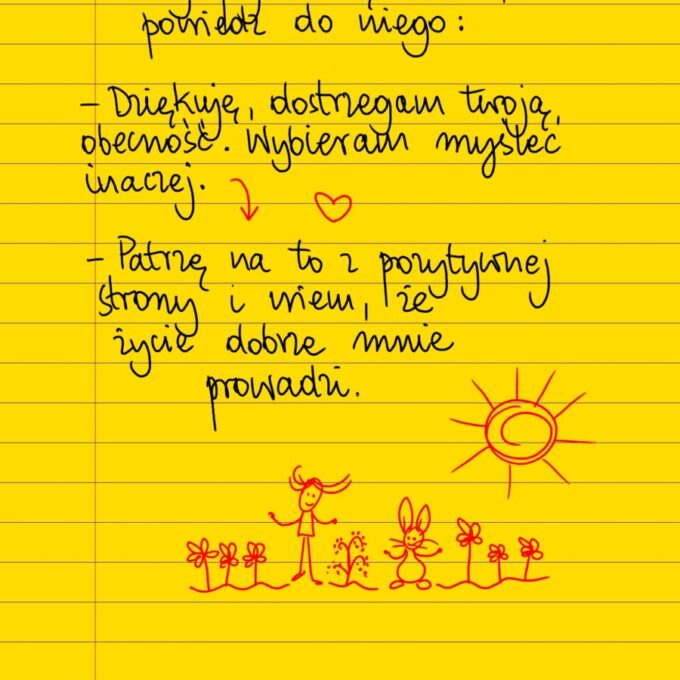 powiedz do niego:
– Dziękuję, dostrzegam twoją
obecność. Wybieram myśleć
inaczej.
– Patrzę na to z pozytywnej
strony i wiem, że
życie dobrze mnie
prowadzi.